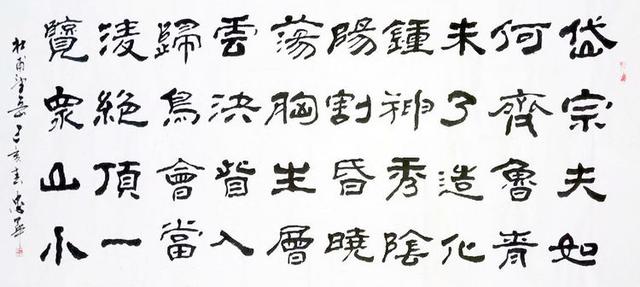 岱宗夫如
何齊魯青
未了造化
鍾神秀陰
陽割昏曉
蕩胸生層
雲決眥入
歸鳥會當
淩絕頂一
覽衆山小
杜甫望岳丁亥春